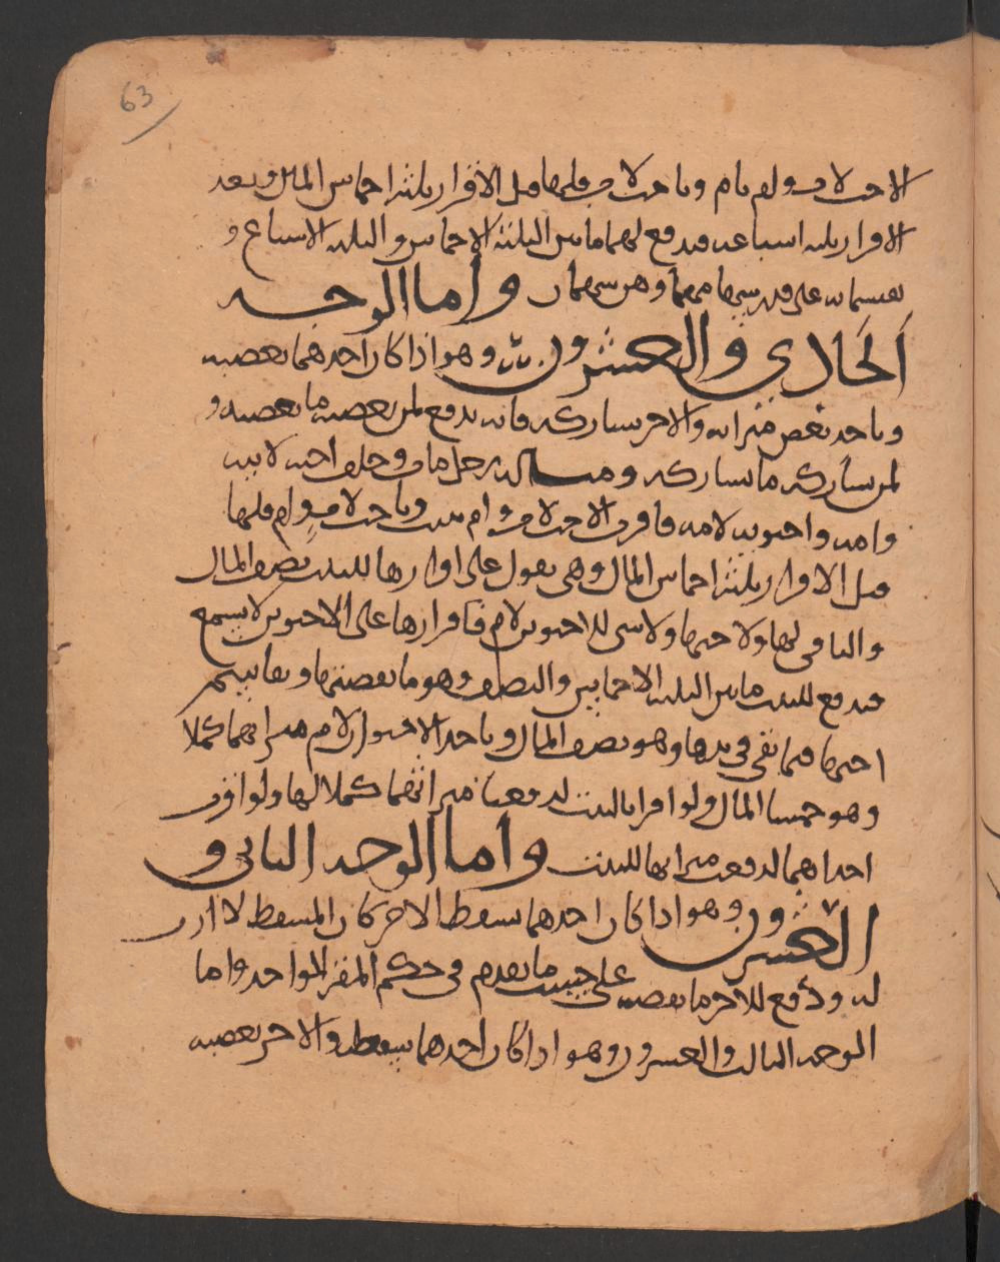 63
الاخت لاب ولام بام وباخت لاب فلها قبل الاقرار ثلثة اخماس المال وبعد
الاقرار ثلثة اسباعه فيدفع لهما ما بين الثلثة الاخماس والثلثة الاسباع و
يقسمانه على قدر سهامهما وهن سهمان واما الوجه
الحادي والعشرون وهو اذا كان احدهما يعصبه
وياخذ بعض ميراثه والاخر يشاركه فانه يدفع لمن يعصبه ما يعصبه و
لمن يشاركه ما يشاركه ومسالته رجل مات وخلف اخته لابيه
وامه واخويه لامه فاقرت الاخت لاب وام ببنت وباخت لاب وام فلها
قبل الاقرار ثلثة اخماس المال وهي تقول على اقرارها للبنت نصف المال
والباقي لها ولاختها ولا شي للاخوين لام فاقرارها على الاخوين لا يسمع
فيدفع للبنت ما بين الثلثة الاخماس والنصف وهو ما يعصبها وتقاسم
اختها فيما بقي في يدها وهو نصف المال وياخذ الاخوان لام ميراثهما كملا
وهو خمسا المال ولو اقرا بالبنت لدفعا ميراثهما كملا لها ولو اقر
احداهما لدفعت ميراثها للبنت واما الوجه الثاني و
العشرون وهو اذا كان احدهما يسقط الاخر كان المسقط لا ارث
له ودفع للاخر ما يعصبه على حسب ما تقدم في حكم المقر الواحد واما
الوجه الثالث والعشرون وهو اذا كان احدهما يسقطه والاخر يعصبه